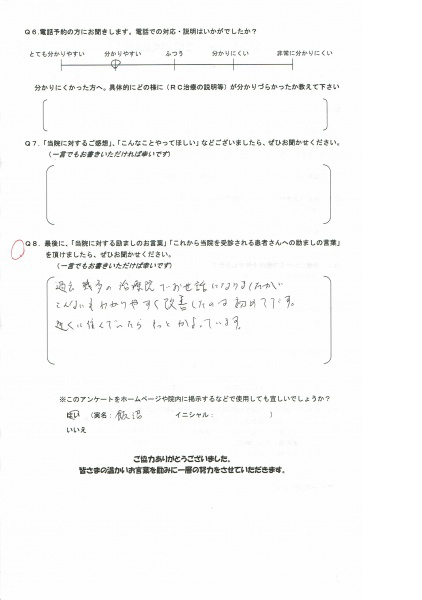 Q6.電話予約の方にお聞きします。電話での対応・説明はいかがでしたか？
とても分かりやすい 分かりやすい ふつう 分かりにくい 非常に分かりにくい
分かりにくかった方へ。具体的にどの様に（RC治療の説明等）が分かりづらかったか教えて下さい
Q7.「当院に対するご感想」、「こんなことやってほしい」などございましたら、ぜひお聞かせください。
（一言でもお書きいただければ幸いです）
Q8.最後に、「当院に対する励ましのお言葉」「これから当院を受診される患者さんへの励ましの言葉」
を頂けましたら、ぜひお聞かせください。
（一言でもお書きいただけば幸いです）
過去 幾多の 治療院でお世話になりましたが
こんなにもわかりやすく改善したのは初めてです。
近くに住んでいたら もっと かよっています。
※このアンケートをホームページや院内に掲示するなどで使用しても宜しいでしょうか？
はい （実名：飯沼 イニシャル： ）
いいえ
ご協力ありがとうございました。
皆さまの温かいお言葉を励みに一層の努力をさせていただきます。